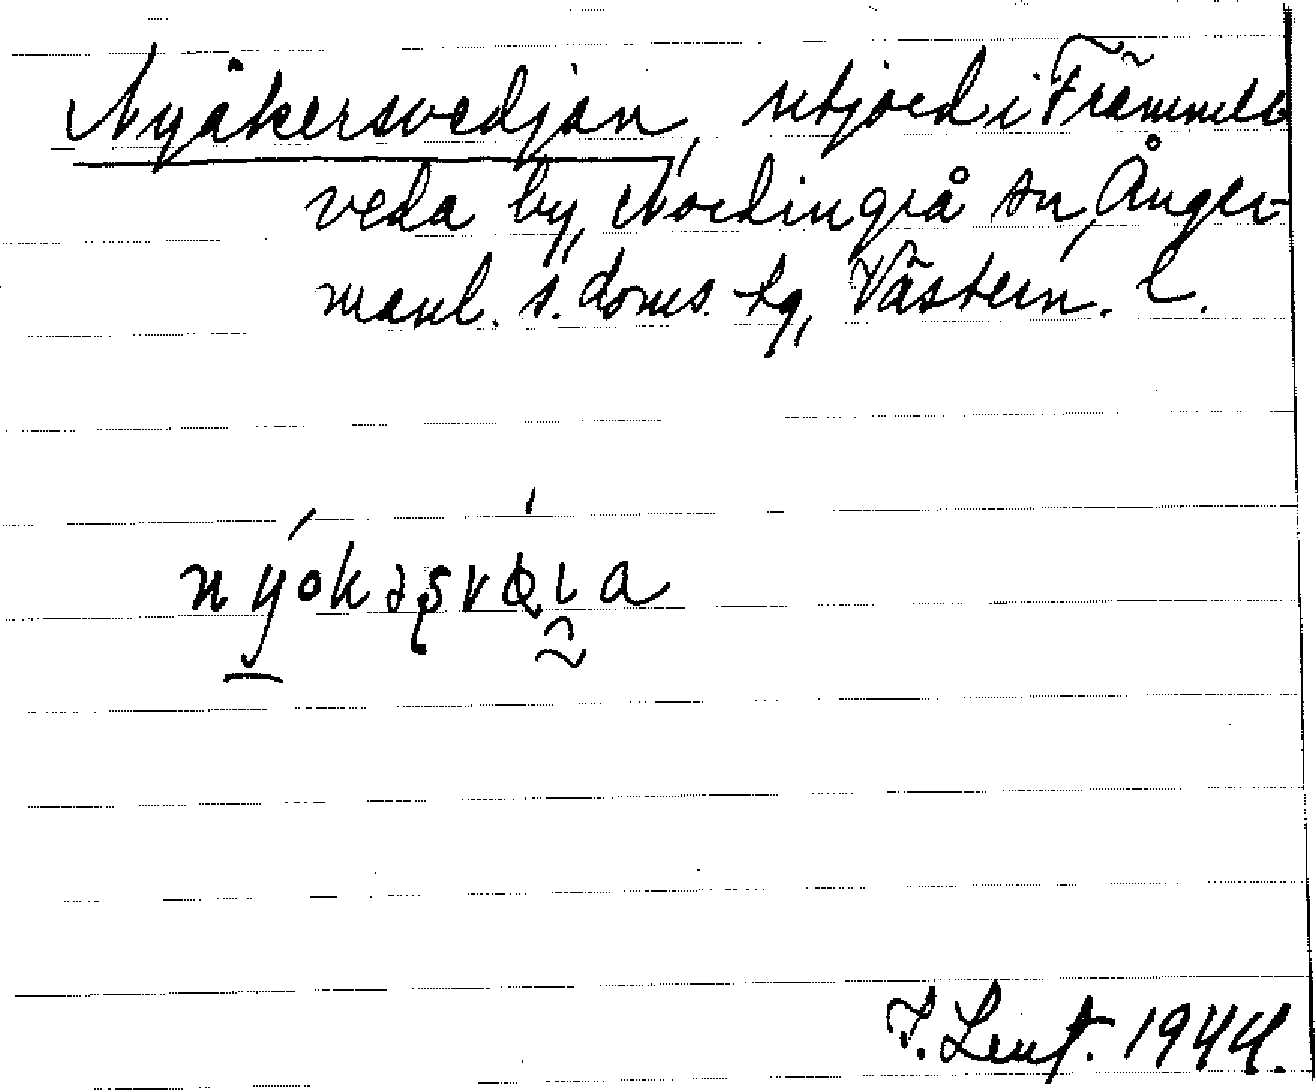 Nyåkersvedjan, utjord i Främmels
veda by, Nordingrå sn, Ånger-
manl. s. doms. tg, Västern. l.
nýokəʂvǿɩa